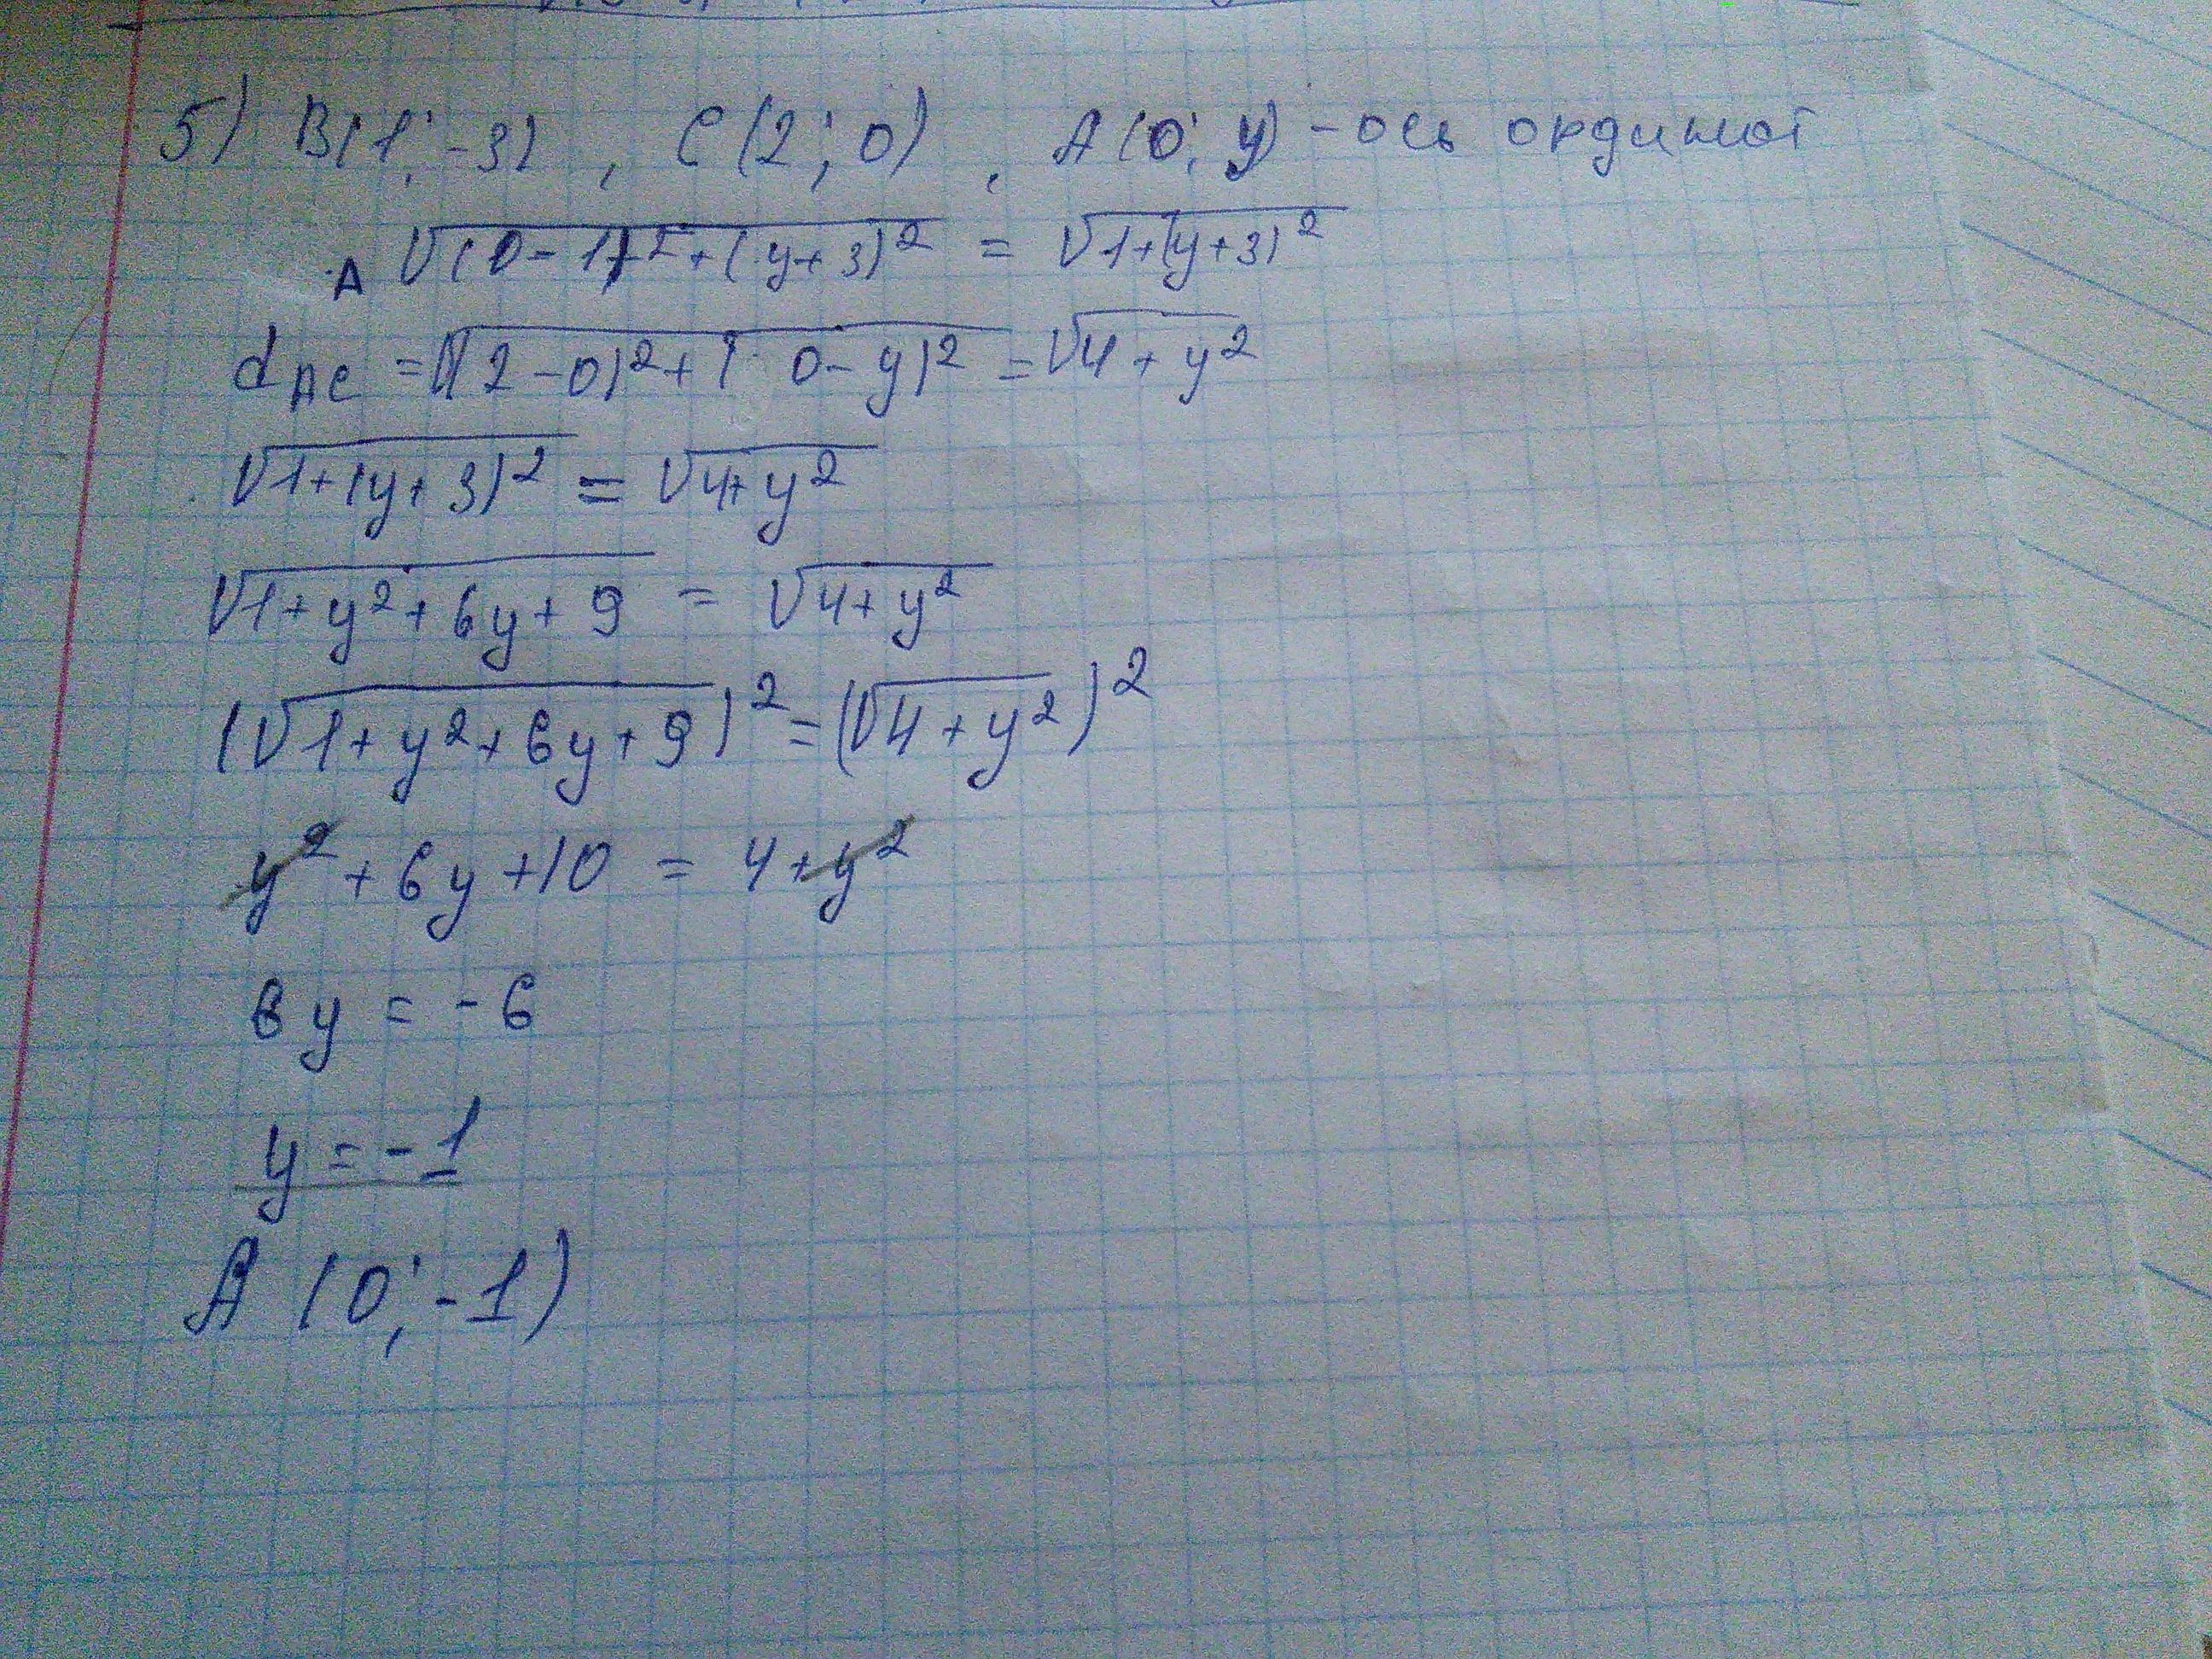 5) B(1; -3), C(2; 0), A(0; y) - ось ординат
A √(0-1)²+(y+3)² = √1+(y+3)²
d AC = √(2-0)²+(0-y)² = √4+y²
√1+(y+3)² = √4+y²
√1+y²+6y+9 = √4+y²
(√1+y²+6y+9)² = (√4+y²)²
y²+6y+10 = 4+y²
6y = -6
y = -1
A (0; -1)